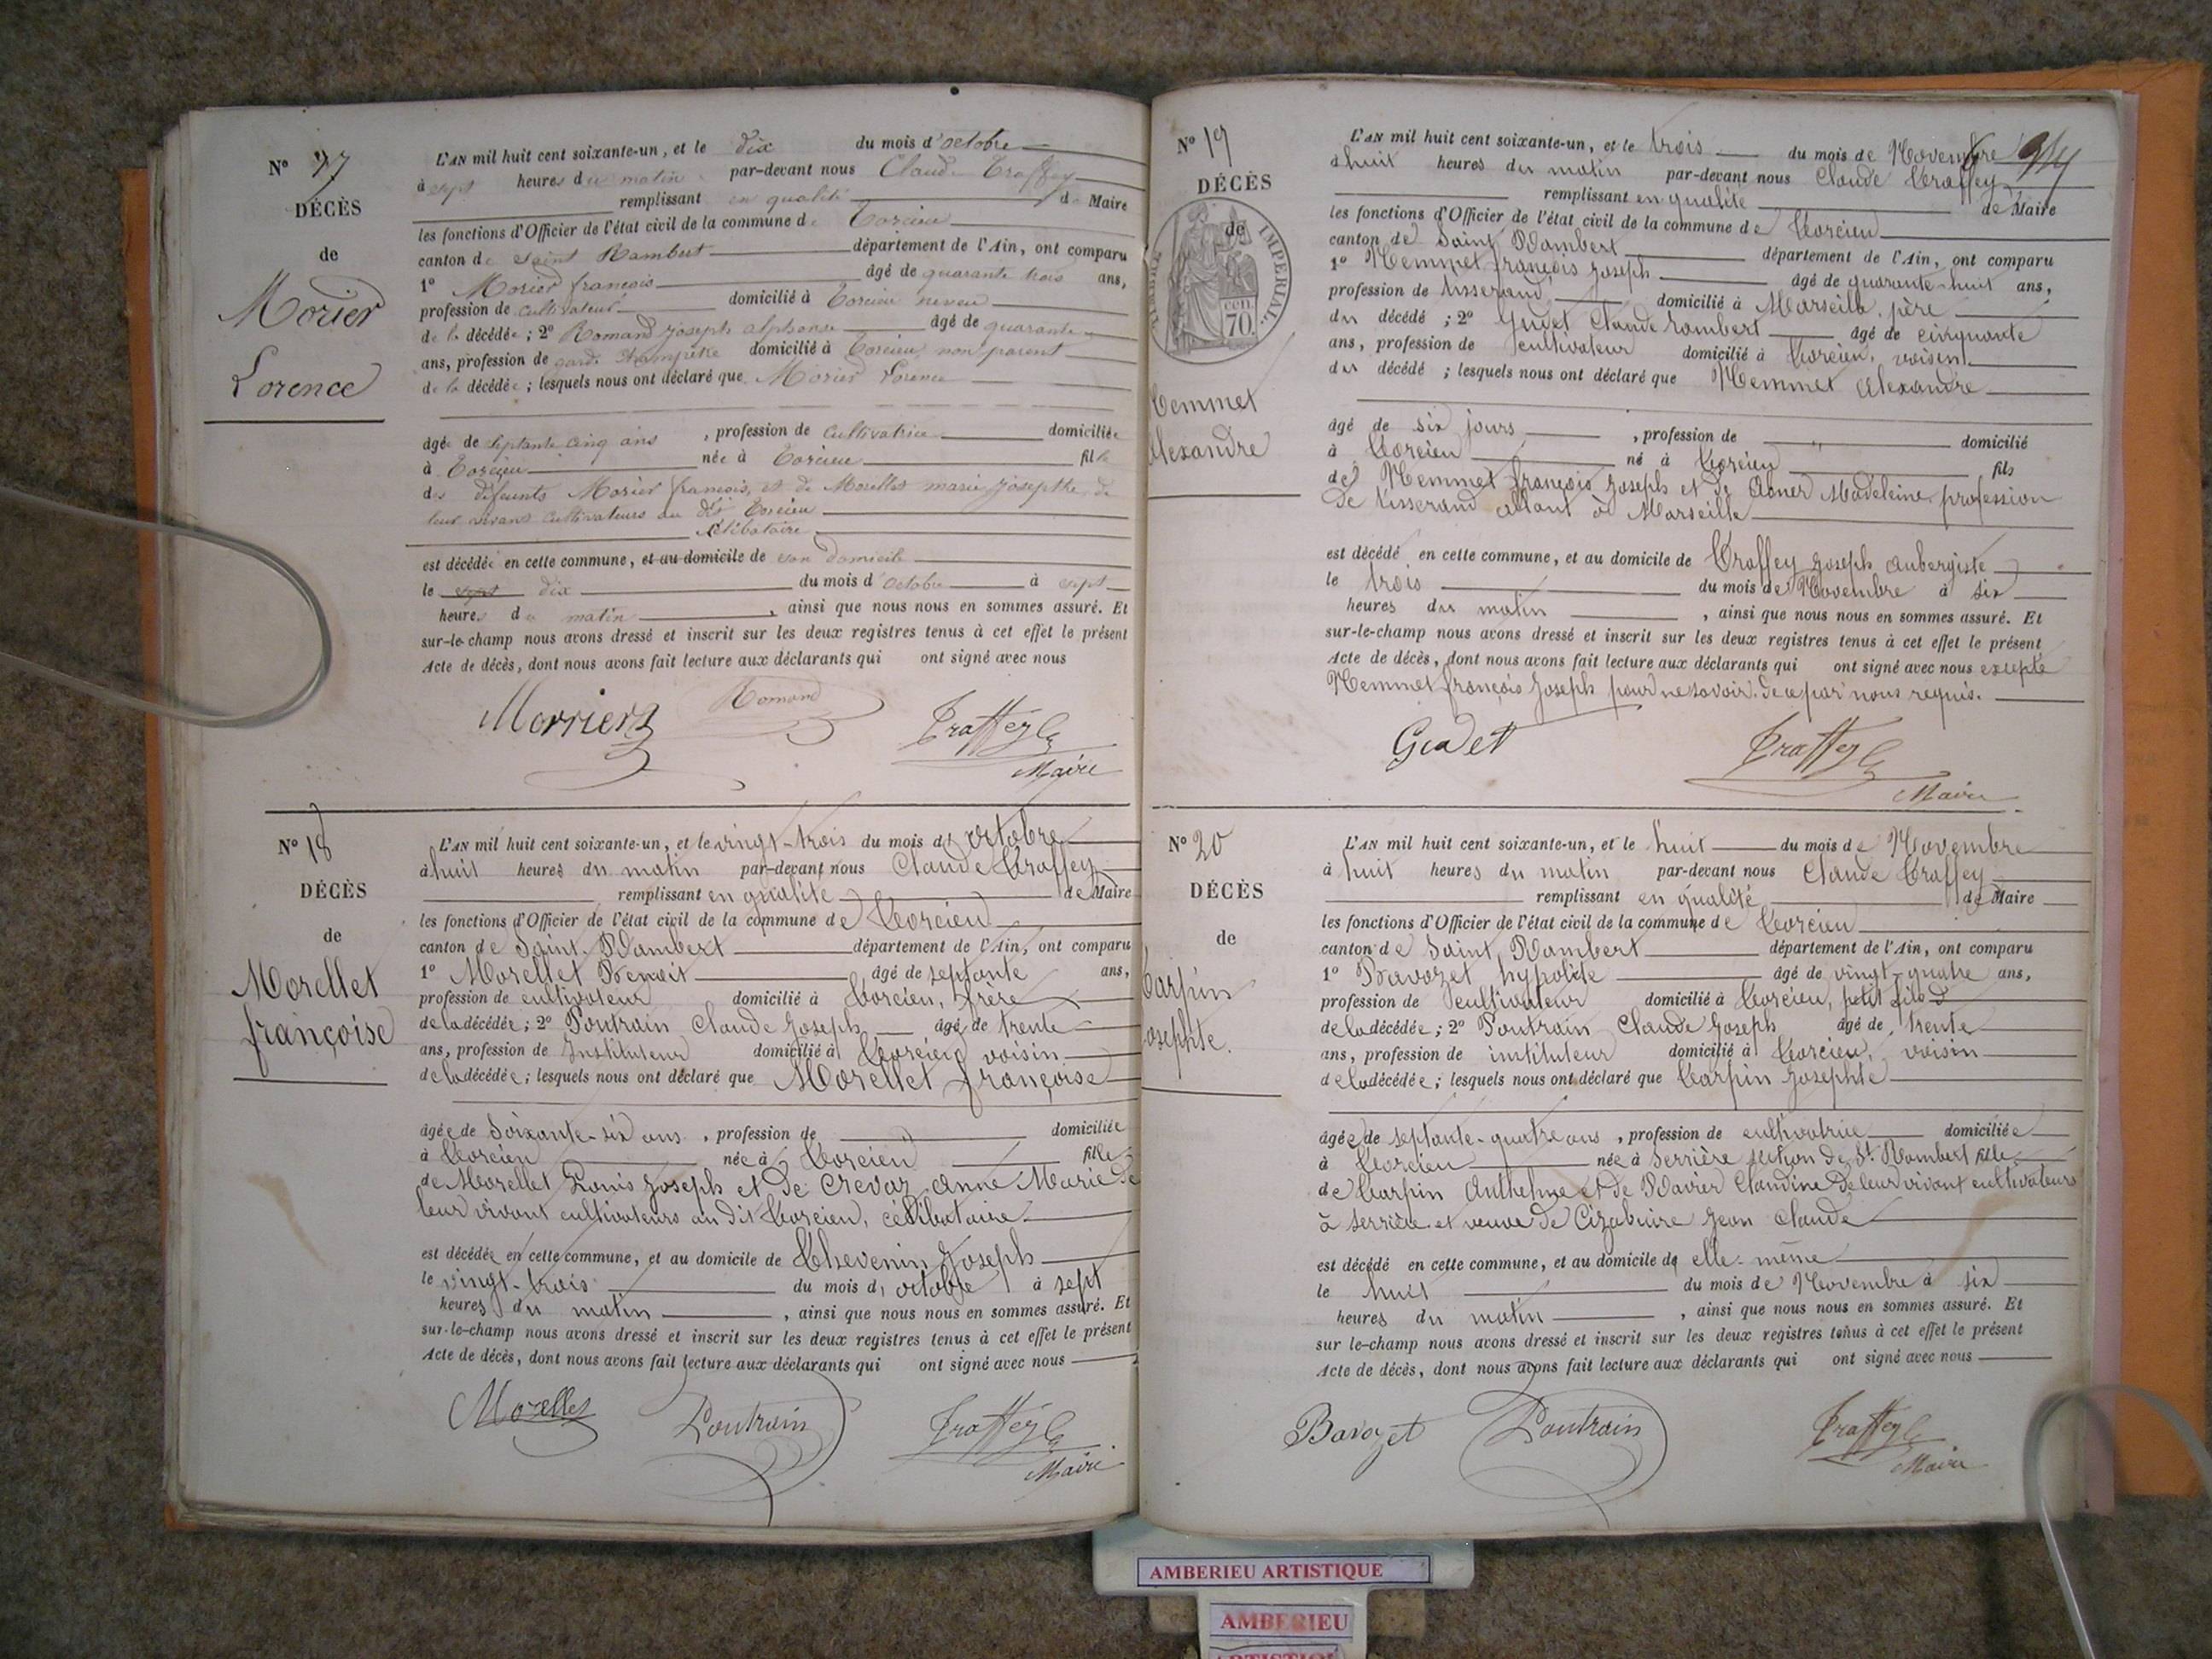 N° 17
DÉCÈS
de
Morier
Lorence
L'AN mil huit cent soixante-un, et le dix du mois d'octobre
à sept heures du matin par-devant nous Claude Traffey
remplissant en qualité de Maire
les fonctions d'Officier de l'état civil de la commune de Torcieu
canton de Saint Rambert département de l'Ain, ont comparu
1° Morier françois âgé de quarante trois ans,
profession de cultivateur domicilié à Torcieu neveu
de la décédée ; 2° Romand Joseph alphonse âgé de quarante
ans, profession de garde champêtre domicilié à Torcieu, non parent
de la décédée ; lesquels nous ont déclaré que Morier Lorence
âgée de septante cinq ans , profession de cultivatrice domiciliée
à Torcieu née à Torcieu fille
des défunts Morier françois, et de Morellet marie josephte, de
leur vivans cultivateurs au dit Torcieu
célibataire
est décédée en cette commune, et au domicile de son domicile
le sept dix du mois d'octobre à sept
heures du matin , ainsi que nous nous en sommes assuré. Et
sur-le-champ nous avons dressé et inscrit sur les deux registres tenus à cet effet le présent
Acte de décès, dont nous avons fait lecture aux déclarants qui ont signé avec nous
Morrier Romand Traffey C
Maire
N° 18
DÉCÈS
de
Morellet
françoise
L'AN mil huit cent soixante-un, et le vingt-trois du mois d'octobre
à huit heures du matin par-devant nous Claude Traffey
remplissant en qualité de Maire
les fonctions d'Officier de l'état civil de la commune de Torcieu
canton de Saint Rambert département de l'Ain, ont comparu
1° Morellet Benoit âgé de septante ans,
profession de cultivateur domicilié à Torcieu, frère
de la décédée ; 2° Poutrain Claude Joseph âgé de trente
ans, profession de Instituteur domicilié à Torcieu voisin
de la décédée ; lesquels nous ont déclaré que Morellet françoise
âgée de soixante-six ans , profession de domiciliée
à Torcieu née à Torcieu fille
de Morellet Louis Joseph et de Crevaz Anne Marie de
leur vivant cultivateurs au dit Torcieu, celibataire
est décédée en cette commune, et au domicile de Thevenin Joseph
le vingt-trois du mois d'octobre à sept
heures du matin , ainsi que nous nous en sommes assuré. Et
sur-le-champ nous avons dressé et inscrit sur les deux registres tenus à cet effet le présent
Acte de décès, dont nous avons fait lecture aux déclarants qui ont signé avec nous
Morellet Poutrain Traffey C
Maire
N° 19
DÉCÈS
de
TIMBRE IMPERIAL
cen
70.
Alexandre
L'AN mil huit cent soixante-un, et le trois du mois de Novembre
à huit heures du matin par-devant nous Claude Traffey
remplissant en qualité de Maire
les fonctions d'Officier de l'état civil de la commune de Torcieu
canton de Saint Rambert département de l'Ain, ont comparu
1° Nemmet François Joseph âgé de quarante-huit ans,
profession de tisserand domicilié à Marseille, père
du décédé ; 2° Gudet Claude Rambert âgé de cinquante
ans, profession de cultivateur domicilié à Torcieu, voisin
du décédé ; lesquels nous ont déclaré que Nemmet Alexandre
âgé de six jours , profession de " domicilié
à Torcieu né à Torcieu fils
de Nemmet François Joseph et de Abner Madeleine, profession
de tisserand allant à Marseille
est décédé en cette commune, et au domicile de Traffey Joseph aubergiste
le trois du mois de Novembre à six
heures du matin , ainsi que nous nous en sommes assuré. Et
sur-le-champ nous avons dressé et inscrit sur les deux registres tenus à cet effet le présent
Acte de décès, dont nous avons fait lecture aux déclarants qui ont signé avec nous excepté
Nemmet françois Joseph pour ne savoir de ce par nous requis.
Gudet Traffey C
Maire
N° 20
DÉCÈS
de
Carpin
Josephte.
L'AN mil huit cent soixante-un, et le huit du mois de Novembre
à huit heures du matin par-devant nous Claude Traffey
remplissant en qualité de Maire
les fonctions d'Officier de l'état civil de la commune de Torcieu
canton de Saint Rambert département de l'Ain, ont comparu
1° Bavozet hypolite âgé de vingt-quatre ans,
profession de cultivateur domicilié à Torcieu, petit fils
de la décédée ; 2° Poutrain Claude Joseph âgé de trente
ans, profession de instituteur domicilié à Torcieu, voisin
de la décédée ; lesquels nous ont déclaré que Carpin Josephte
âgée de septante-quatre ans , profession de cultivatrice domiciliée
à Torcieu née à Serrière section de St. Rambert fille
de Carpin Anthelme et de Ravier Claudine de leur vivant cultivateurs
à Serrière et veuve de Cizabuire Jean Claude
est décédé en cette commune, et au domicile de elle-même
le huit du mois de Novembre à six
heures du matin , ainsi que nous nous en sommes assuré. Et
sur le-champ nous avons dressé et inscrit sur les deux registres tenus à cet effet le présent
Acte de décès, dont nous avons fait lecture aux déclarants qui ont signé avec nous
Bavozet Poutrain Traffey C
Maire
AMBERIEU ARTISTIQUE
AMBERIEU
ARTISTIQUE